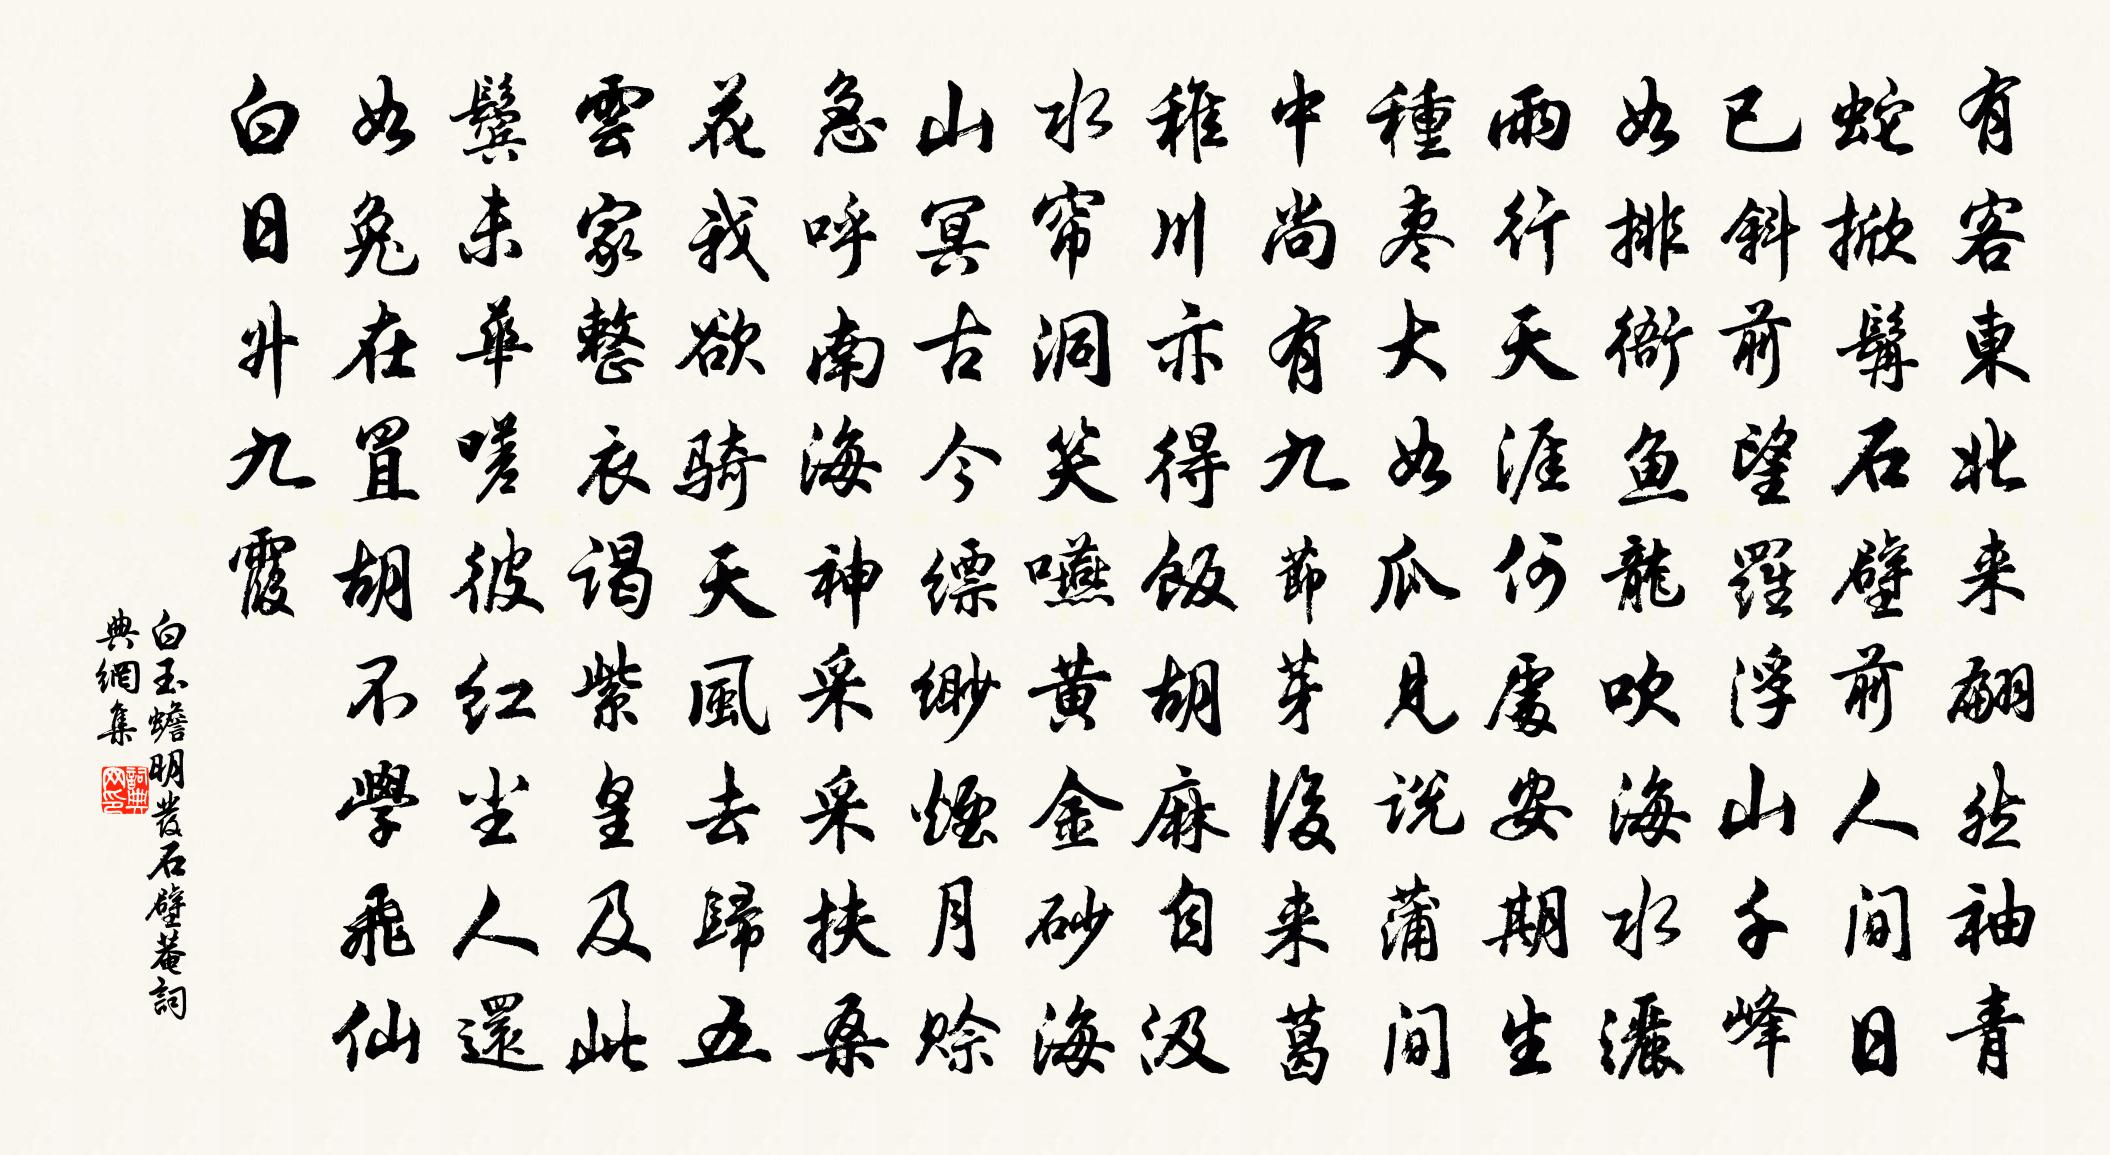 有客東北来翩然袖青
蛇掀髯石壁前人间日
已斜前望羅浮山千峰
如排衙鱼龍吹海水灑
雨行天涯何處安期生
種枣大如瓜見说蒲间
中尚有九節芽後来葛
稚川亦得飯胡麻自汲
水帘洞笑嚥黄金砂海
山冥古今缥缈煙月賒
急呼南海神采采扶桑
花我欲骑天風去歸五
雲家整衣谒紫皇及此
鬓未華嗟彼红尘人還
如兔在罝胡不學飛仙
白日升九霞
白玉蟾明發石壁菴詞
典網集
詞典网印